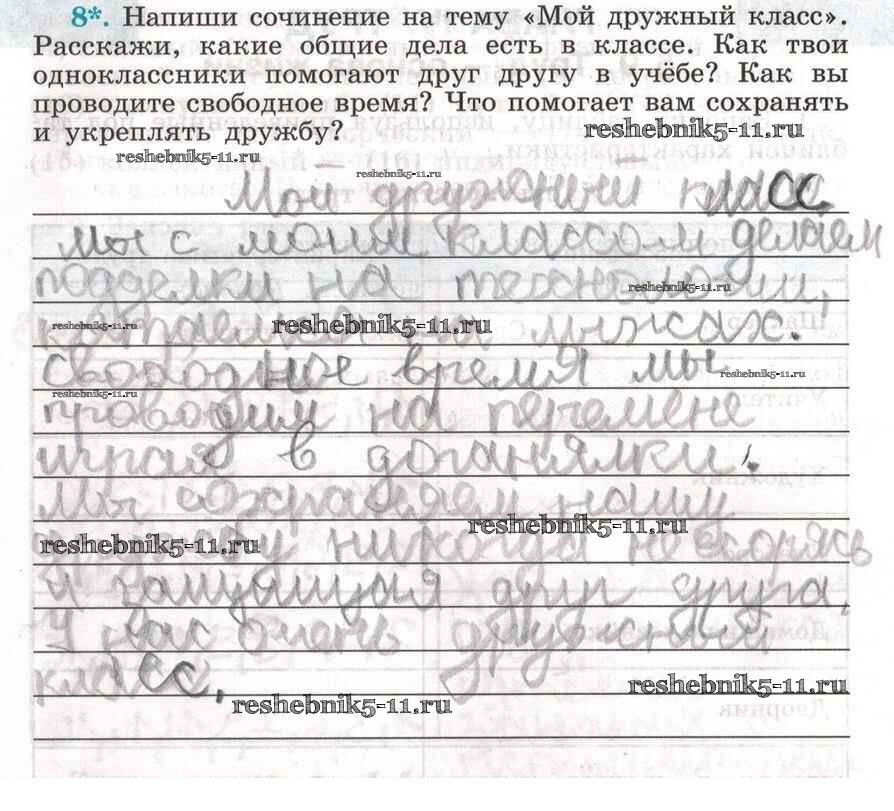 8*. Напиши сочинение на тему «Мой дружный класс».
Расскажи, какие общие дела есть в классе. Как твои
одноклассники помогают друг другу в учёбе? Как вы
проводите свободное время? Что помогает вам сохранять
и укреплять дружбу?
reshebnik5-11.ru
reshebnik5-11.ru
reshebnik5-11.ru
Мой дружный класс
Мы с моим классом делаем
подделки на технологии,
reshebnik5-11.ru
катаемся на лыжах.
reshebnik5-11.ru
reshebnik5-11.ru
Свободное время мы
reshebnik5-11.ru
reshebnik5-11.ru
проводим на перемене
играя в доганялки.
Мы сохраняем нашу
reshebnik5-11.ru
дружбу никогда не ссорясь
reshebnik5-11.ru
и защищая друг друга,
У нас очень дружный
класс,
reshebnik5-11.ru
reshebnik5-11.ru